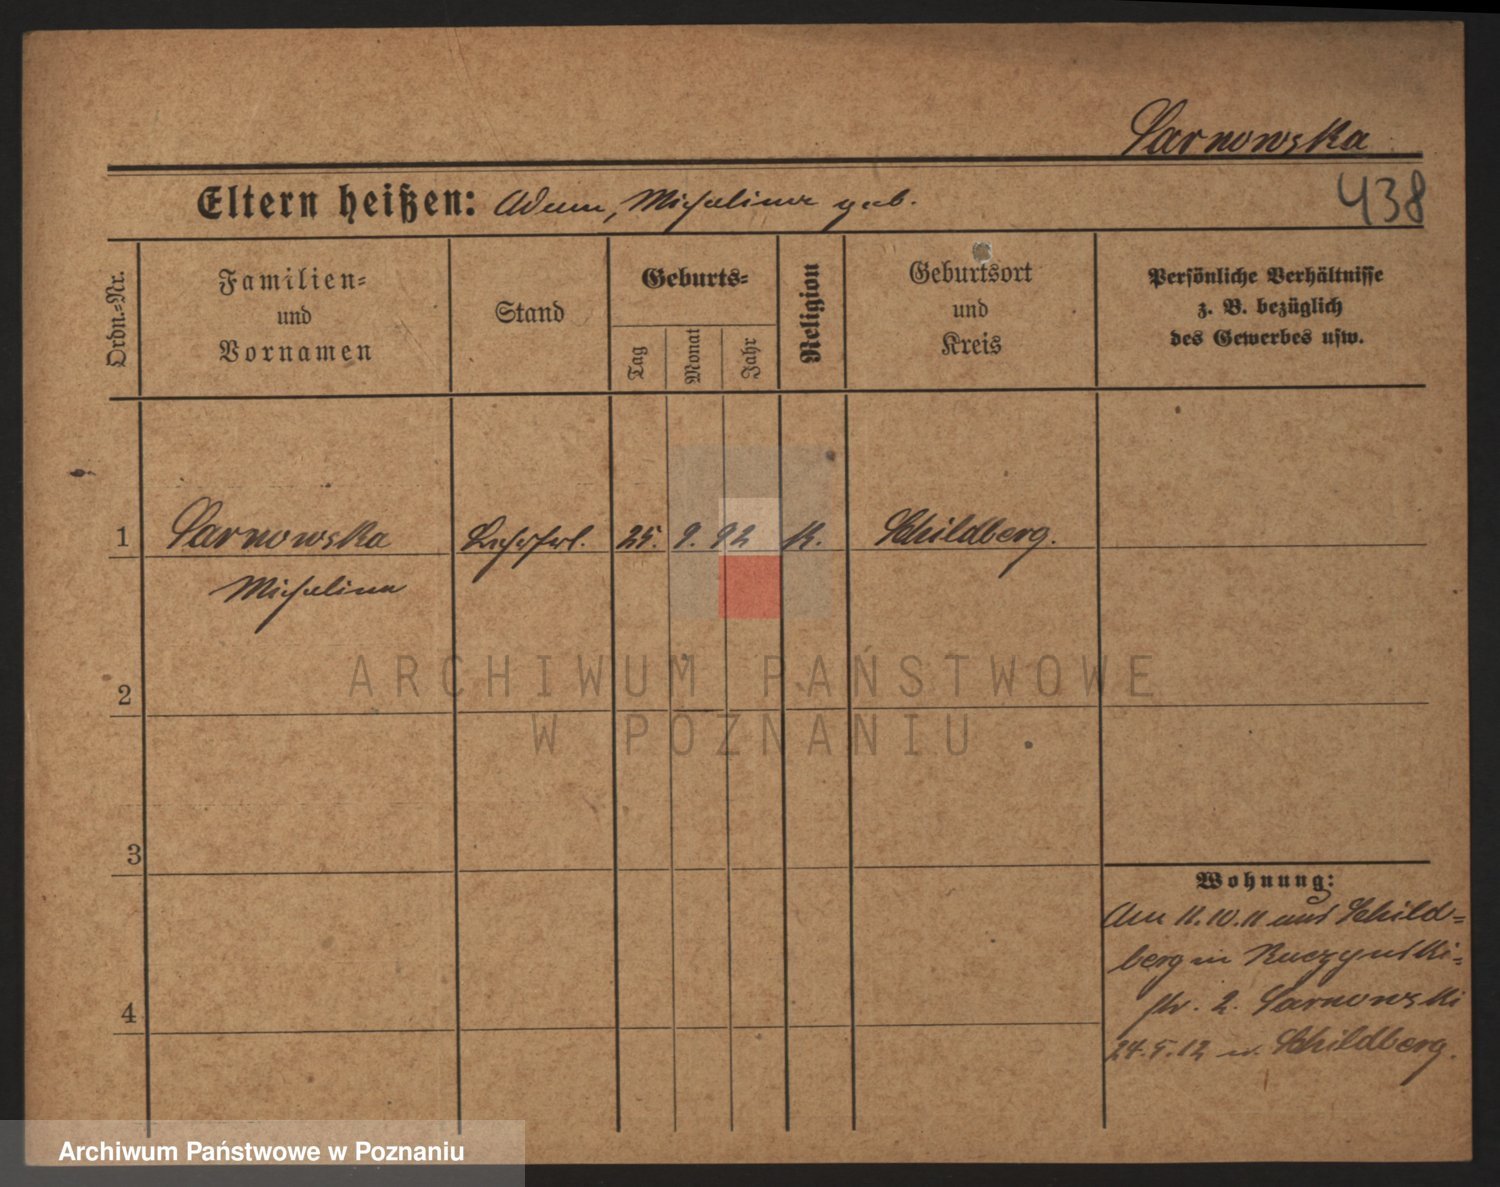 Sarnowska
438
Eltern heißen: Adam, Michalina geb.
Ordn.-Nr.
Familien-
und
Vornamen
Stand
Geburts-
Tag
Monat
Jahr
Religion
Geburtsort
und
Kreis
Persönliche Verhältnisse
z. B. bezüglich
des Gewerbes usw.
1 Sarnowska 25. 9. 92 K. Schildberg.
Michalina
2
3
4
Wohnung:
Am 11.10.11 aus Schild-
berg in Raczynski-
str. 2. Sarnowski
24.5.12 n. Schildberg.
ARCHIWUM PAŃSTWOWE
W POZNANIU
Archiwum Państwowe w Poznaniu